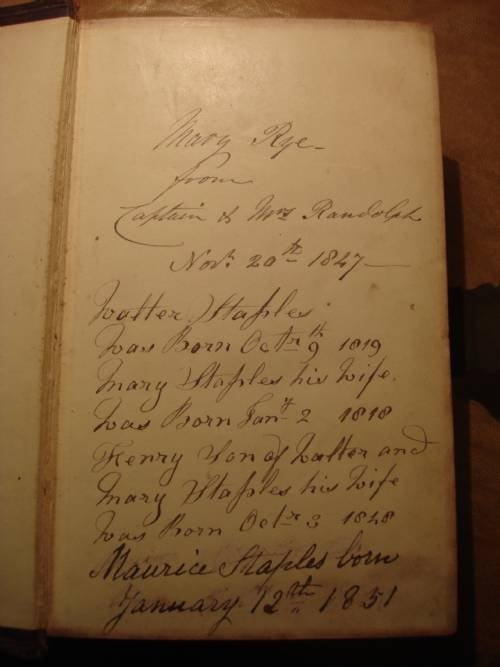 Mary Rye -
from
Captain & Mrs Randolph
Novr. 20th 1847 -
Walter Staples
Was Born Octr 9th 1819
Mary Staples his Wife.
Was Born Jany 2 1818
Henry Son of Walter and
Mary Staples his Wife
Was Born Octr 3 1848
Maurice Staples born
January 12th 1851